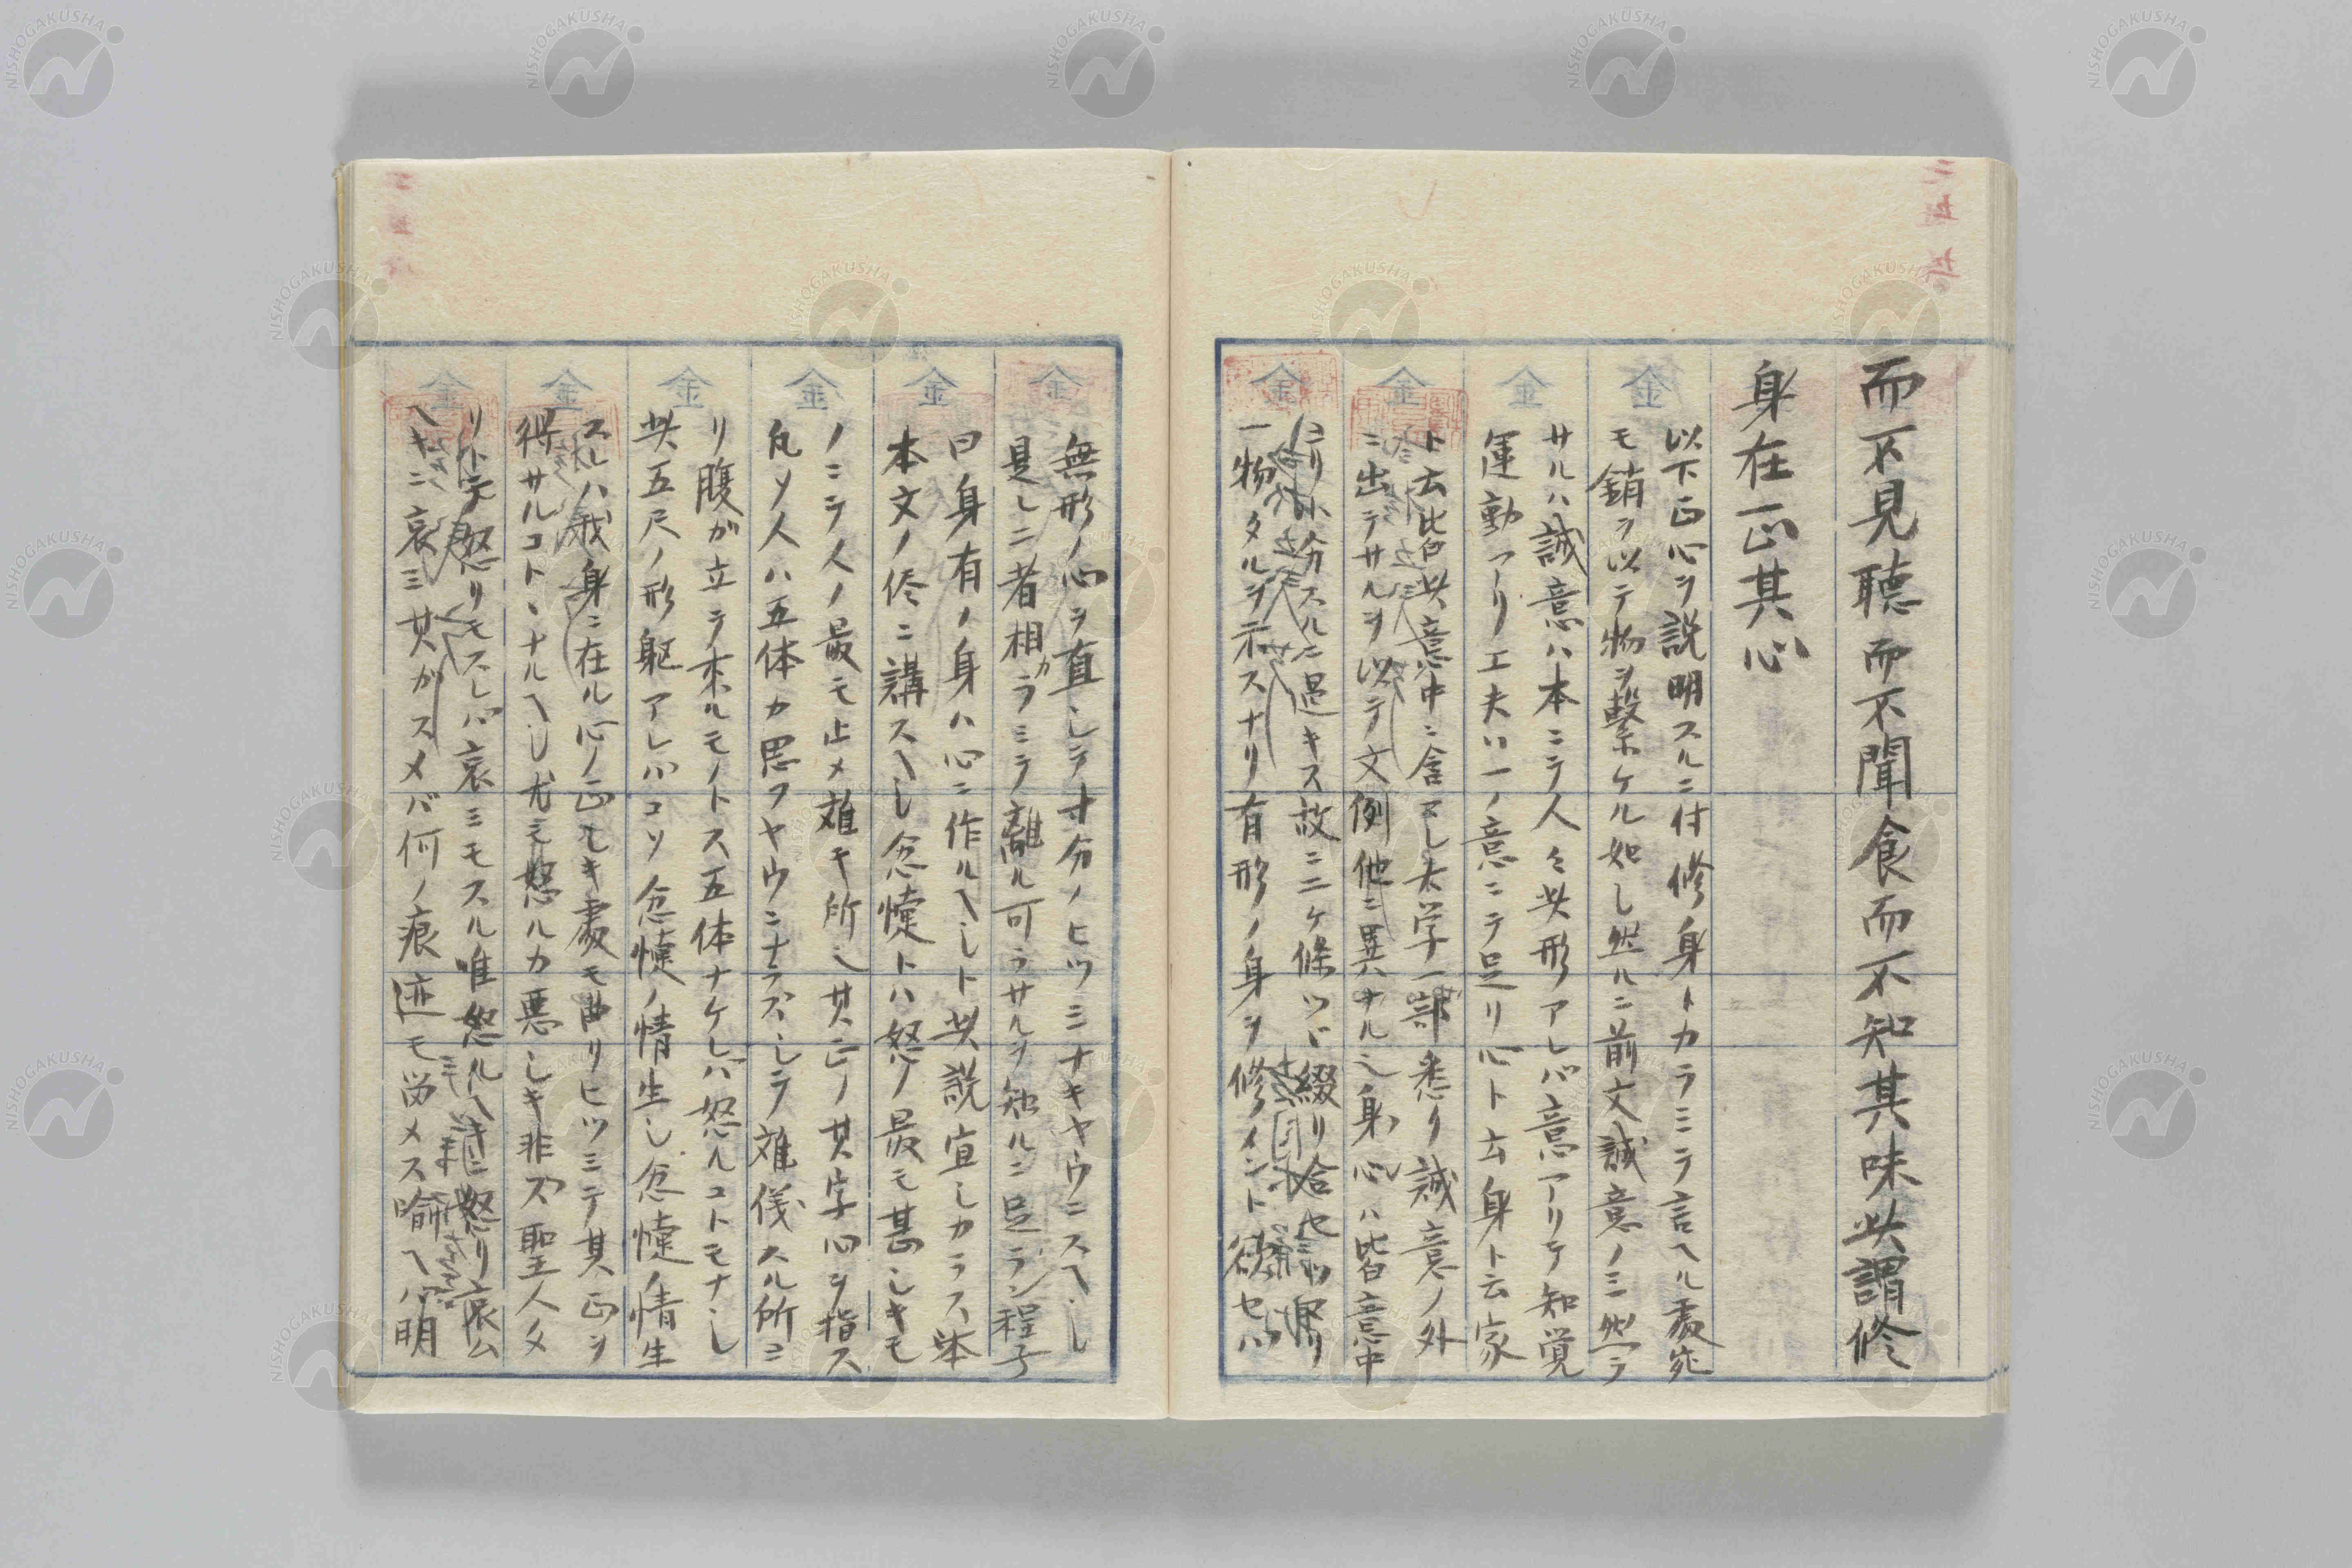 而不見聴而不聞食而不知其味此謂修
身在正其心
以下正心ヲ説明スルニ付修身トカラミテ言ヘル處宛
モ鎖ヲ以テ物ヲ繋ケル如し然ルニ前文誠意ノミ然ラ
サルハ誠意ハ本ニテ人々此形アレバ意アリテ知覚
運動アリ工夫ハ一ノ意ニテ足リ心ト云身ト云家
ト云皆此意中ニ含アし大学一部悉ク誠意ノ外
ニ出デサルヲ以テ文例他ニ異ナル也身心ハ皆意中
ニリ小分スルニ過キス故ニ二ケ條ツヽ綴リ合セツ
一物タルヲ示スナリ有形ノ身ヲ修メント欲セハ
無形ノ心ヲ直シテ寸分ノヒツミナキヤウニスヘし
是し二者相カラミテ離ル可ラサルヲ知ルニ足ラン程子
曰身有ノ身ハ心ニ作ルヘしト此説宜しカラス
本文ノ侭ニ講スヘし忿懥トハ怒ノ最モ甚しキモ
ノニテ人ノ最モ止メ難キ所也其正ノ其字心ヲ指ス
凡ソ人ハ五体カ思フヤウニナラズしテ難儀スル所ヨ
リ腹が立テ来ルモノトス五体ナケレバ怒ルコトモナし
此五尺ノ形躯アレバコソ忿懥ノ情生し忿懥ノ情生
スレハ我身ニ在ル心ノ正しキ處モ曲リヒツミテ其正ヲ
得サルコトヽナルヘし尤モ怒ルカ悪しキ非ズ聖人タ
リトテ怒リモスレバ哀ミモスル唯怒ルヘキニ怒リ哀ム
ヘキニ哀ミ其がスメバ何ノ痕迹モ留メス喩ヘバ明